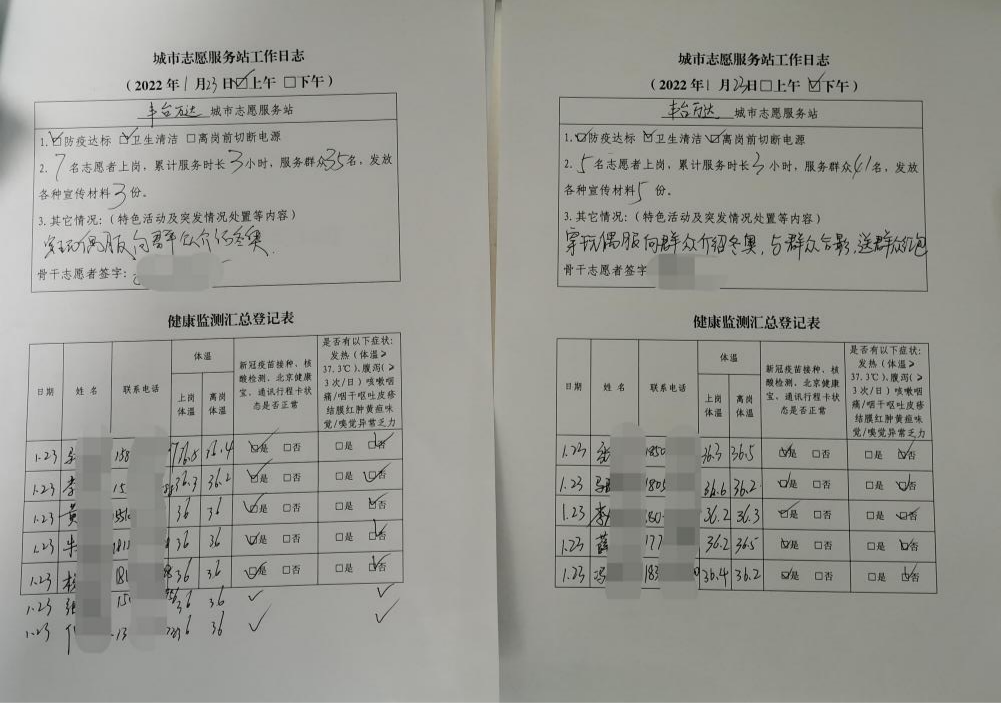 城市志愿服务站工作日志
（2022年1月23日☑上午 □下午）
丰台万达 城市志愿服务站
1.☑防疫达标 ☑卫生清洁 □离岗前切断电源
2.7名志愿者上岗，累计服务时长3小时，服务群众35名，发放
各种宣传材料3份。
3.其它情况：（特色活动及突发情况处置等内容）
穿玩偶服向群众介绍冬奥.
骨干志愿者签字：
健康监测汇总登记表
日期 姓名 联系电话 体温 上岗体温 离岗体温 新冠疫苗接种、核酸检测、北京健康宝、通讯行程卡状态是否正常 是否有以下症状：发热（体温≥37.3℃）、腹泻（≥3次/日）咳嗽咽痛/咽干呕吐皮疹结膜红肿黄疸味觉/嗅觉异常乏力
1.23 158 36.4 ☑是 □否 □是 ☑否
1.23 李 15 36.3 36.2 ☑是 □否 □是 ☑否
1.23 黄 36 36 ☑是 □否 □是 ☑否
1.23 朱 36 36 ☑是 □否 □是 ☑否
1.23 36 36 ☑是 □否 □是 ☑否
1.23 张 36 36 ✓ ✓
1.23 13 36 ✓ ✓
城市志愿服务站工作日志
（2022年1月23日□上午 ☑下午）
丰台万达 城市志愿服务站
1.☑防疫达标 ☑卫生清洁 ☑离岗前切断电源
2.5名志愿者上岗，累计服务时长3小时，服务群众41名，发放
各种宣传材料5份。
3.其它情况：（特色活动及突发情况处置等内容）
穿玩偶服向群众介绍冬奥，与群众合影，送群众红包
骨干志愿者签字
健康监测汇总登记表
日期 姓名 联系电话 体温 上岗体温 离岗体温 新冠疫苗接种、核酸检测、北京健康宝、通讯行程卡状态是否正常 是否有以下症状：发热（体温≥37.3℃）、腹泻（≥3次/日）咳嗽咽痛/咽干呕吐皮疹结膜红肿黄疸味觉/嗅觉异常乏力
1.23 1850 36.3 36.5 ☑是 □否 □是 ☑否
1.23 180 36.6 36.2 ☑是 □否 □是 ☑否
1.23 李 180 36.2 36.3 ☑是 □否 □是 ☑否
1.23 薛 177 36.2 36.5 ☑是 □否 □是 ☑否
1.23 冯 183 36.4 36.2 ☑是 □否 □是 ☑否